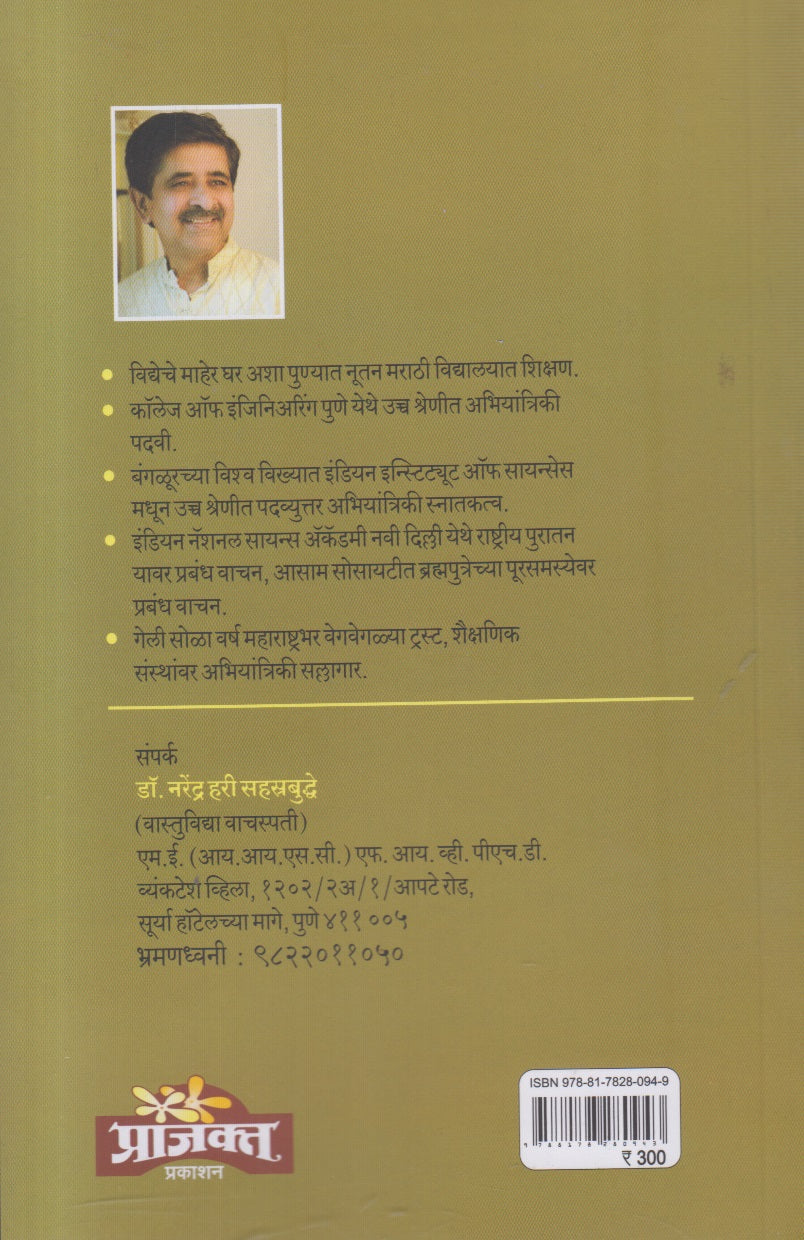 विद्येचे माहेर घर अशा पुण्यात नूतन मराठी विद्यालयात शिक्षण.
कॉलेज ऑफ इंजिनिअरिंग पुणे येथे उच्च श्रेणीत अभियांत्रिकी
पदवी.
बंगळूरच्या विश्व विख्यात इंडियन इन्स्टिट्यूट ऑफ सायन्सेस
मधून उच्च श्रेणीत पदव्युत्तर अभियांत्रिकी स्नातकत्व.
इंडियन नॅशनल सायन्स ॲकॅडमी नवी दिल्ली येथे राष्ट्रीय पुरातन
यावर प्रबंध वाचन, आसाम सोसायटीत ब्रह्मपुत्रेच्या पूरसमस्येवर
प्रबंध वाचन.
गेली सोळा वर्ष महाराष्ट्रभर वेगवेगळ्या ट्रस्ट, शैक्षणिक
संस्थांवर अभियांत्रिकी सल्लागार.
संपर्क
डॉ. नरेंद्र हरी सहस्रबुद्धे
(वास्तुविद्या वाचस्पती)
एम.ई. (आय.आय.एस.सी.) एफ. आय. व्ही. पीएच.डी.
व्यंकटेश व्हिला, १२०२/२अ/१/आपटे रोड,
सूर्या हॉटेलच्या मागे, पुणे ४११ ००५
भ्रमणध्वनी : ९८२२०११०५०
प्राजक्त
प्रकाशन
ISBN 978-81-7828-094-9
9 788178 280943
₹ 300